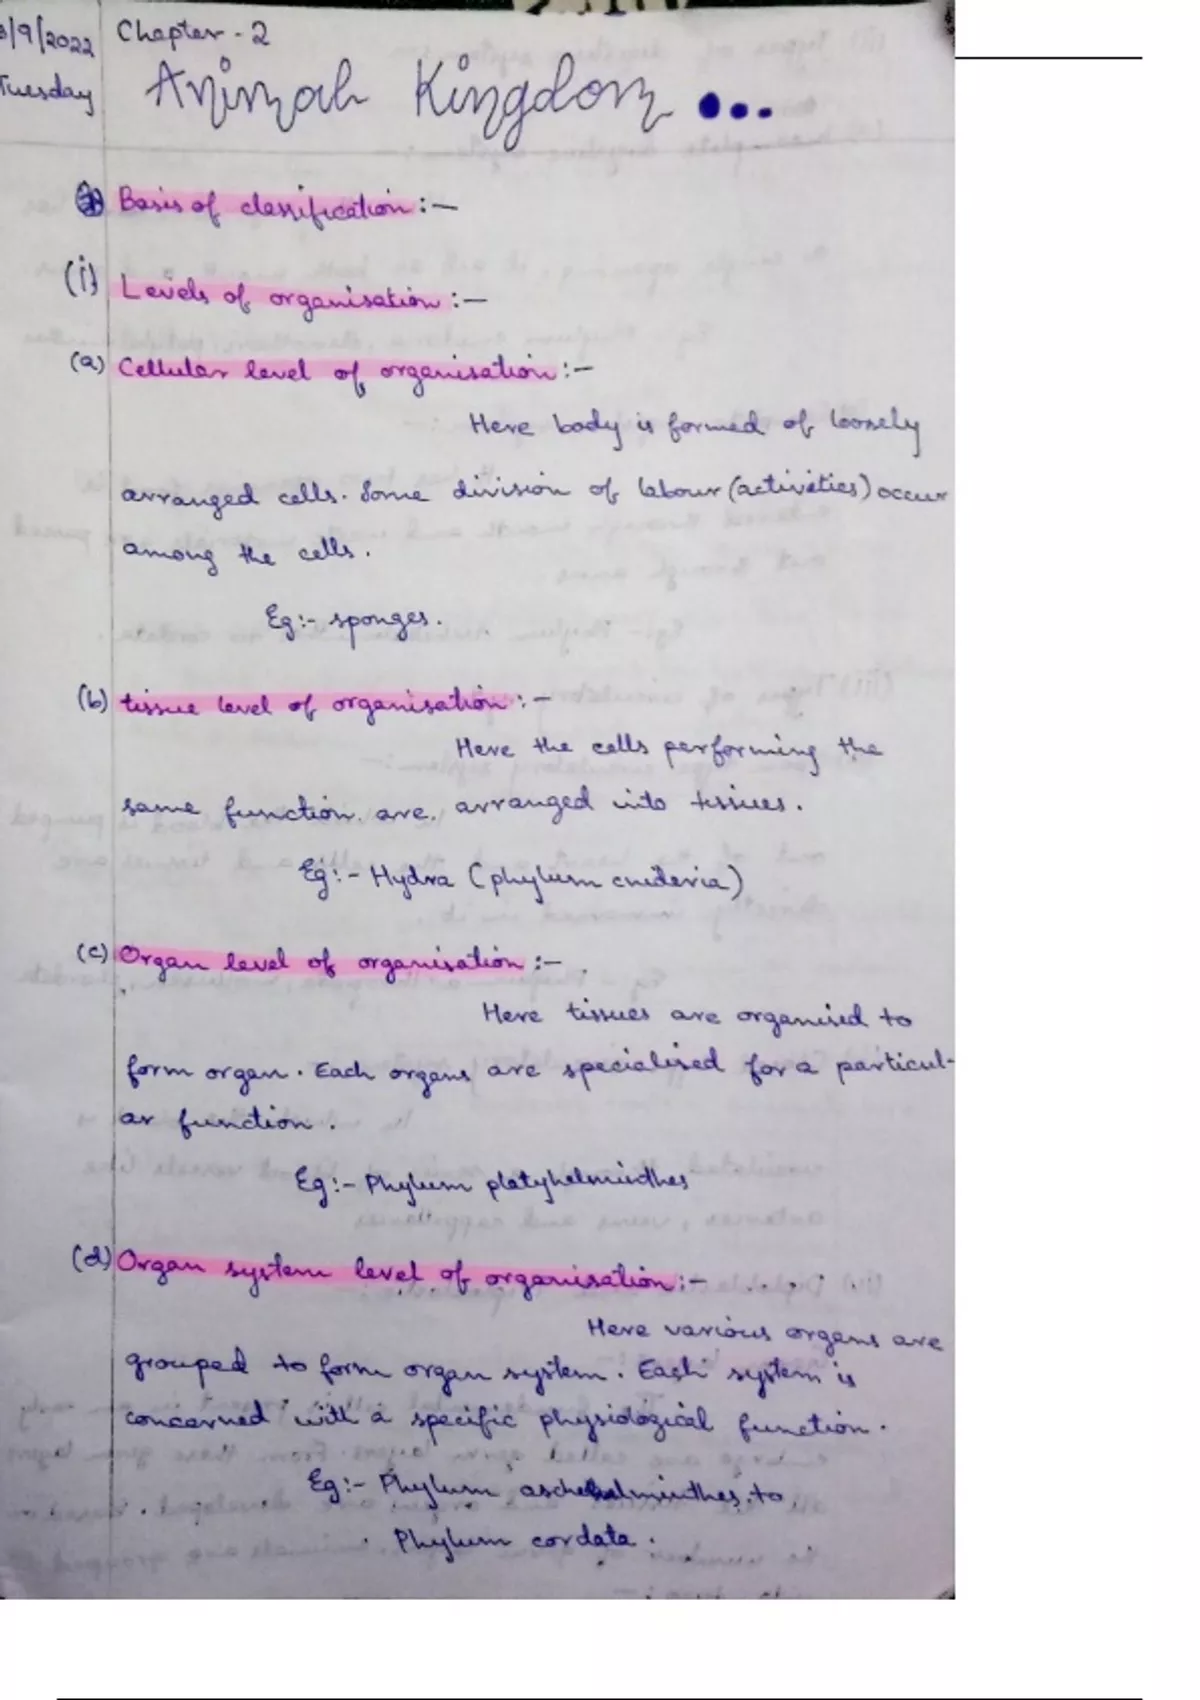 /9/2022 Chapter - 2
Tuesday Animal Kingdom ...
Basis of classification :-
(i) Levels of organisation :-
(a) Cellular level of organisation :-
Here body is formed of loosely
arranged cells. Some division of labour (activities) occur
among the cells.
Eg:- sponges.
(b) tissue level of organisation :-
Here the cells performing the
same function are arranged into tissues.
Eg:- Hydra (phylum cnideria)
(c) Organ level of organisation :-
Here tissues are organised to
form organ. Each organs are specialised for a particul-
ar function.
Eg:- Phylum platyhelminthes
(d) Organ system level of organisation :-
Here various organs are
grouped to form organ system. Each system is
concerned with a specific physiological function.
Eg:- Phylum aschehelminthes to
Phylum cordata.